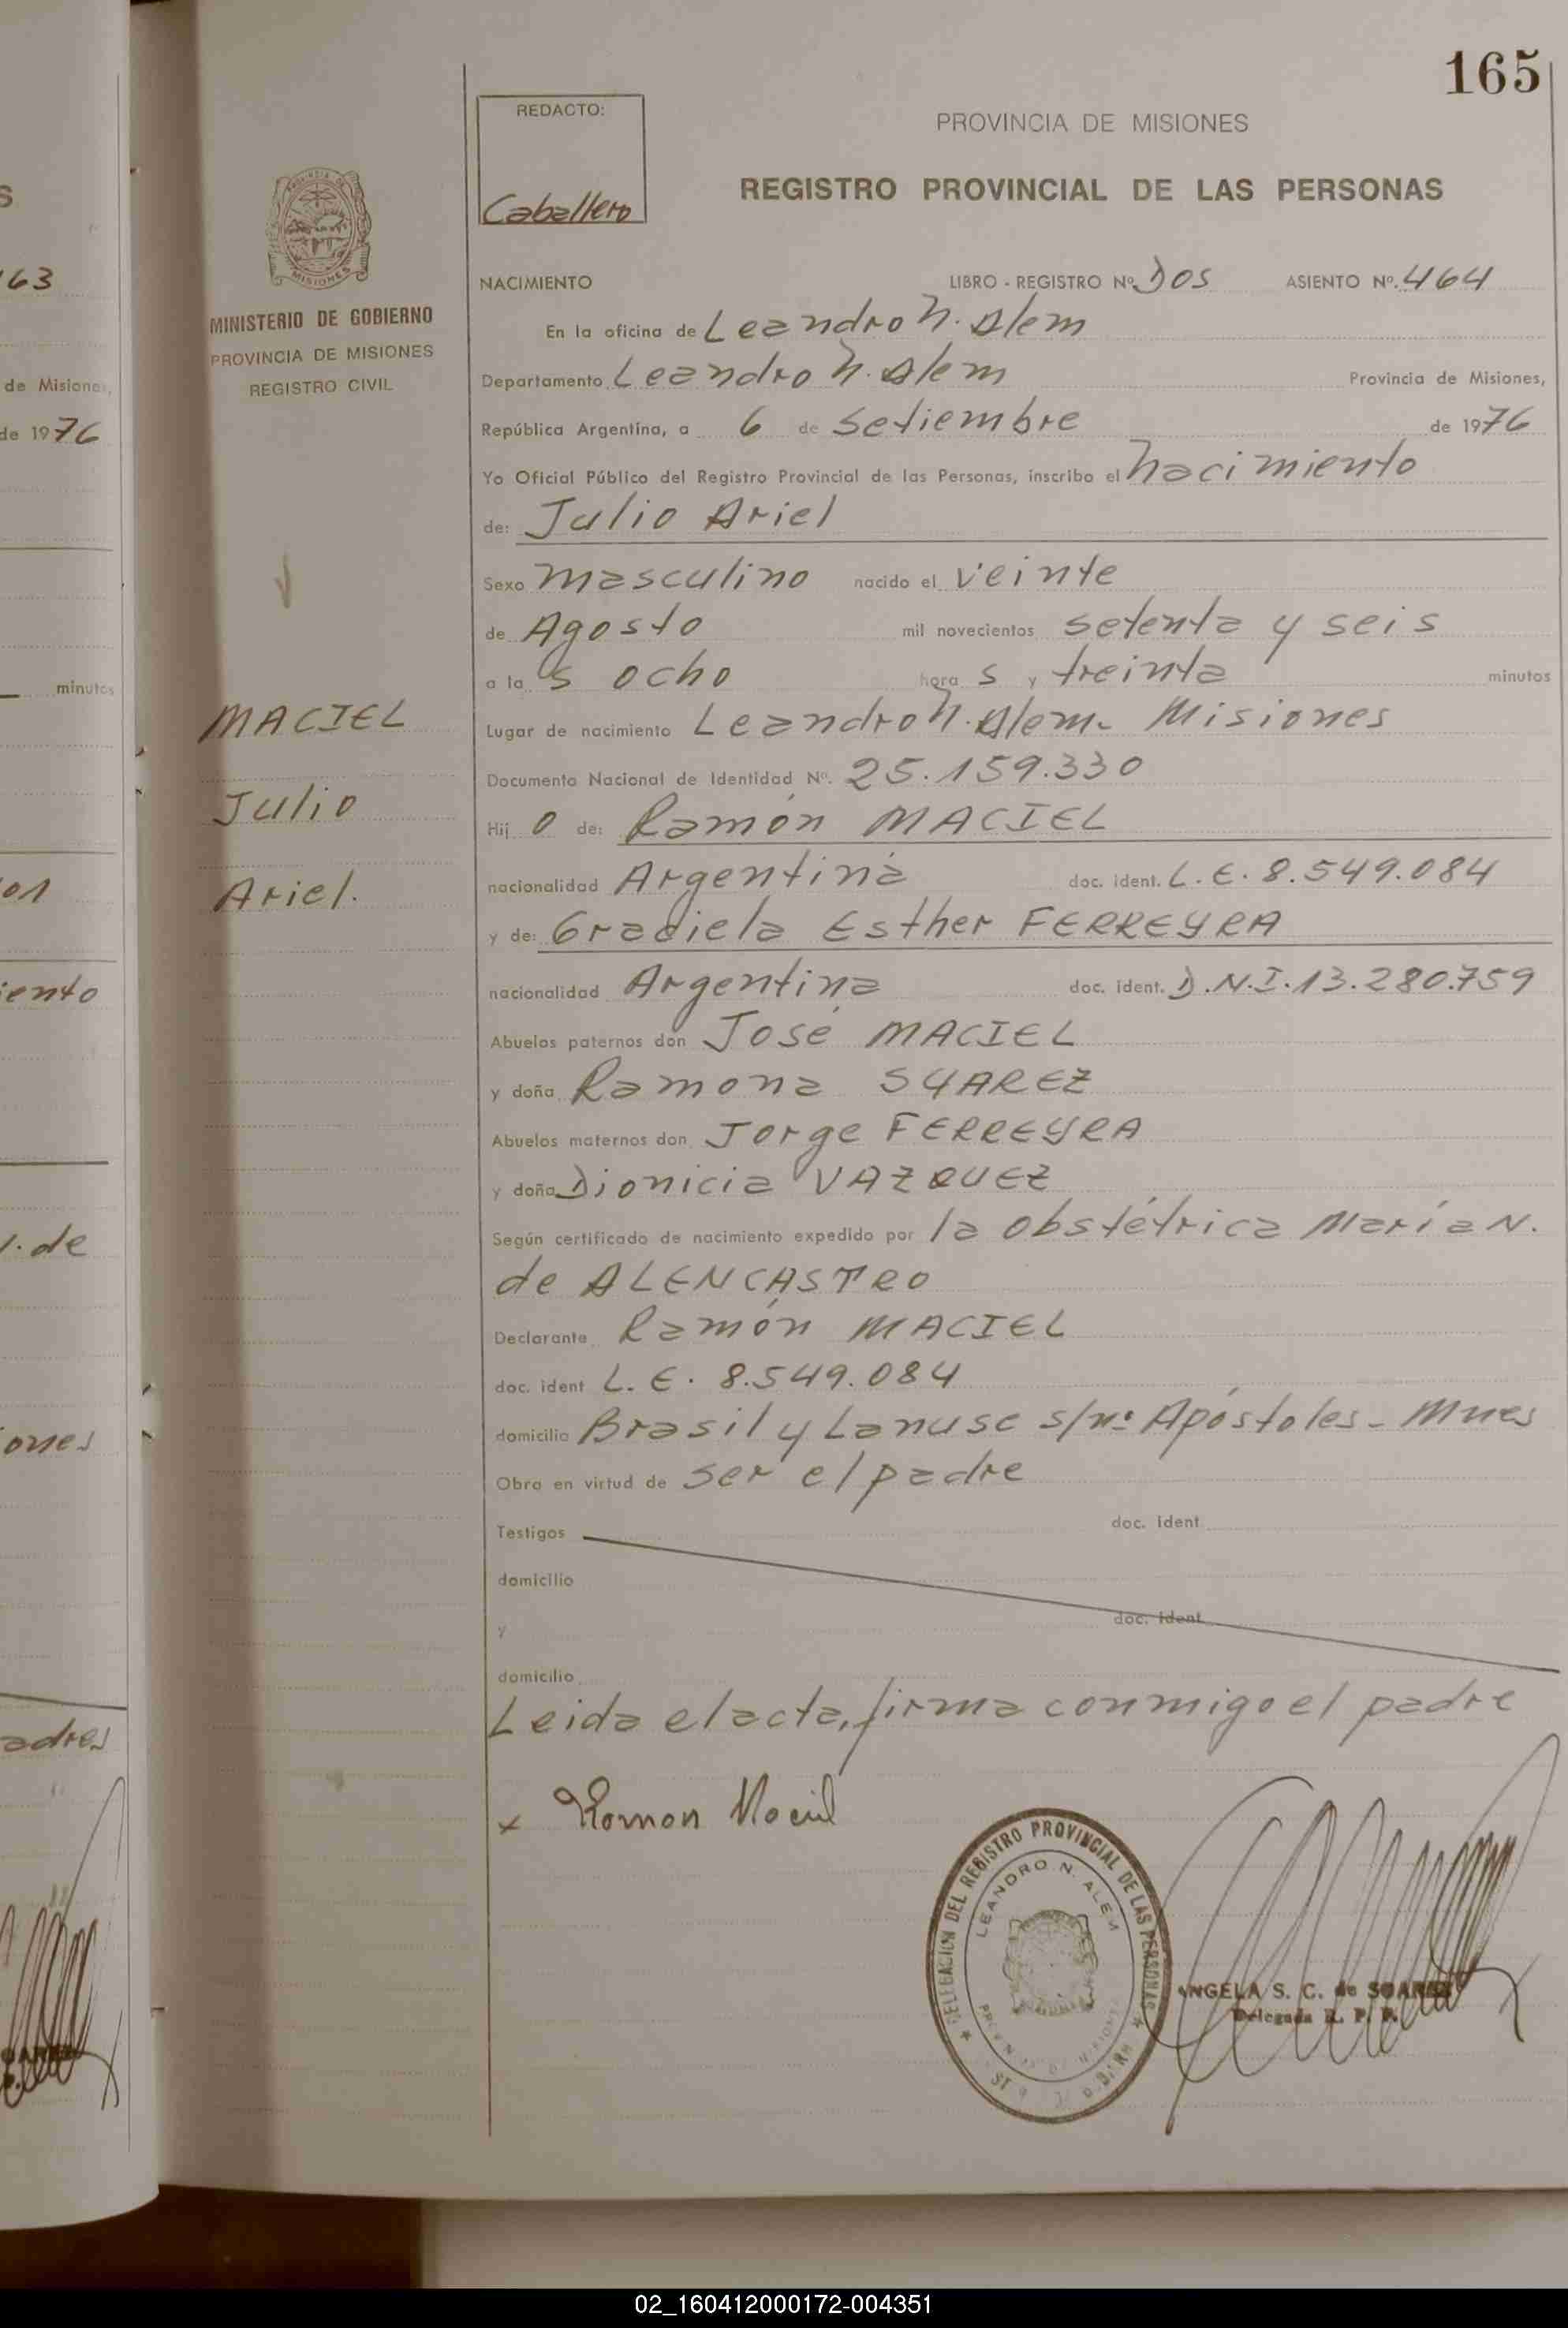 165
REDACTO:
Caballero
PROVINCIA DE MISIONES
REGISTRO PROVINCIAL DE LAS PERSONAS
MINISTERIO DE GOBIERNO
PROVINCIA DE MISIONES
REGISTRO CIVIL
MACIEL
Julio
Ariel.
NACIMIENTO LIBRO - REGISTRO Nº DOS ASIENTO Nº. 464
En la oficina de Leandro N. Alem
Departamento Leandro N. Alem Provincia de Misiones,
República Argentina, a 6 de Setiembre de 1976
Yo Oficial Público del Registro Provincial de las Personas, inscribo el nacimiento
de: Julio Ariel
Sexo masculino nacido el veinte
de Agosto mil novecientos setenta y seis
a las ocho horas y treinta minutos
Lugar de nacimiento Leandro N. Alem- Misiones
Documento Nacional de Identidad Nº. 25.159.330
Hijo de: Ramón MACIEL
nacionalidad Argentina doc. ident. L.E. 8.549.084
y de: Graciela Esther FERREYRA
nacionalidad Argentina doc. ident. D.N.I. 13.280.759
Abuelos paternos don José MACIEL
y doña Ramona SUAREZ
Abuelos maternos don Jorge FERREYRA
y doña Dionicia VAZQUEZ
Según certificado de nacimiento expedido por la obstétrica María N.
de ALENCASTRO
Declarante Ramón MACIEL
doc. ident L.E. 8.549.084
domicilio Brasil y Lanuse s/nº Apóstoles - Mnes
Obra en virtud de ser el padre
Testigos doc. ident
domicilio
y doc. ident
domicilio
Leida el acta, firma conmigo el padre
x Ramon Maciel
DELEGACION DEL REGISTRO PROVINCIAL DE LAS PERSONAS
LEANDRO N. ALEM
ANGELA S. C. de SOAREZ
Delegada R. P. P.
63
de Misiones,
de 1976
minutos
iento
de
ones
adres
02_160412000172-004351